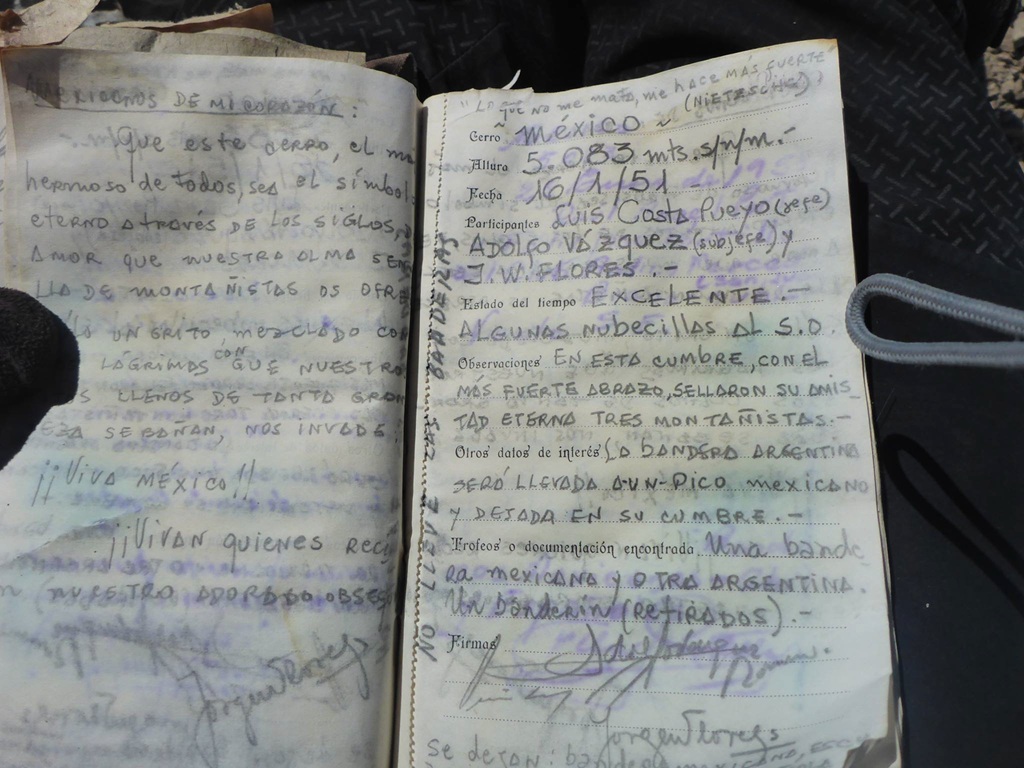 AMERICANOS DE MI CORAZÓN :
Que este cerro, el m
hermoso de todos, sea el símbol
eterno através de los siglos,
AMOR QUE NUESTRA ALMA SEN
LLA DE MONTAÑISTAS OS OFRE
UN GRITO, MEZCLADO CO
LÁGRIMAS CON QUE NUESTRO
S LLENOS DE TANTA GRAN
EZA SE BAÑAN, NOS INVADE:
¡¡VIVA MÉXICO!!
¡¡VIVAN QUIENES RECI
N NUESTRO ADORADO OBSE
Jorge W Flores
"LO QUE NO ME MATA, ME HACE MÁS FUERTE"
(NIETZSCHE)
Cerro MÉXICO
Altura 5.083 mts. s/n/m.-
Fecha 16/1/51 -
Participantes LUIS COSTA PUEYO (jefe)
ADOLFO VÁZQUEZ (subjefe) y
J. W. FLORES .-
Estado del tiempo EXCELENTE .-
ALGUNAS NUBECILLAS AL S.O.
Observaciones EN ESTA CUMBRE, CON EL
MÁS FUERTE ABRAZO, SELLARON SU AMIS
TAD ETERNA TRES MONTAÑISTAS.-
Otros datos de interés LA BANDERA ARGENTINA
SERÁ LLEVADA A-UN-PICO MEXICANO
Y DEJADA EN SU CUMBRE.-
Trofeos o documentación encontrada Una bande
ra mexicana y OTRA ARGENTINA.
Un banderín (RETIRADOS) .-
Firmas
Jorge W Flores
Se dejan: bandera MEXICANA,
NO LLEVE LAS BANDERAS